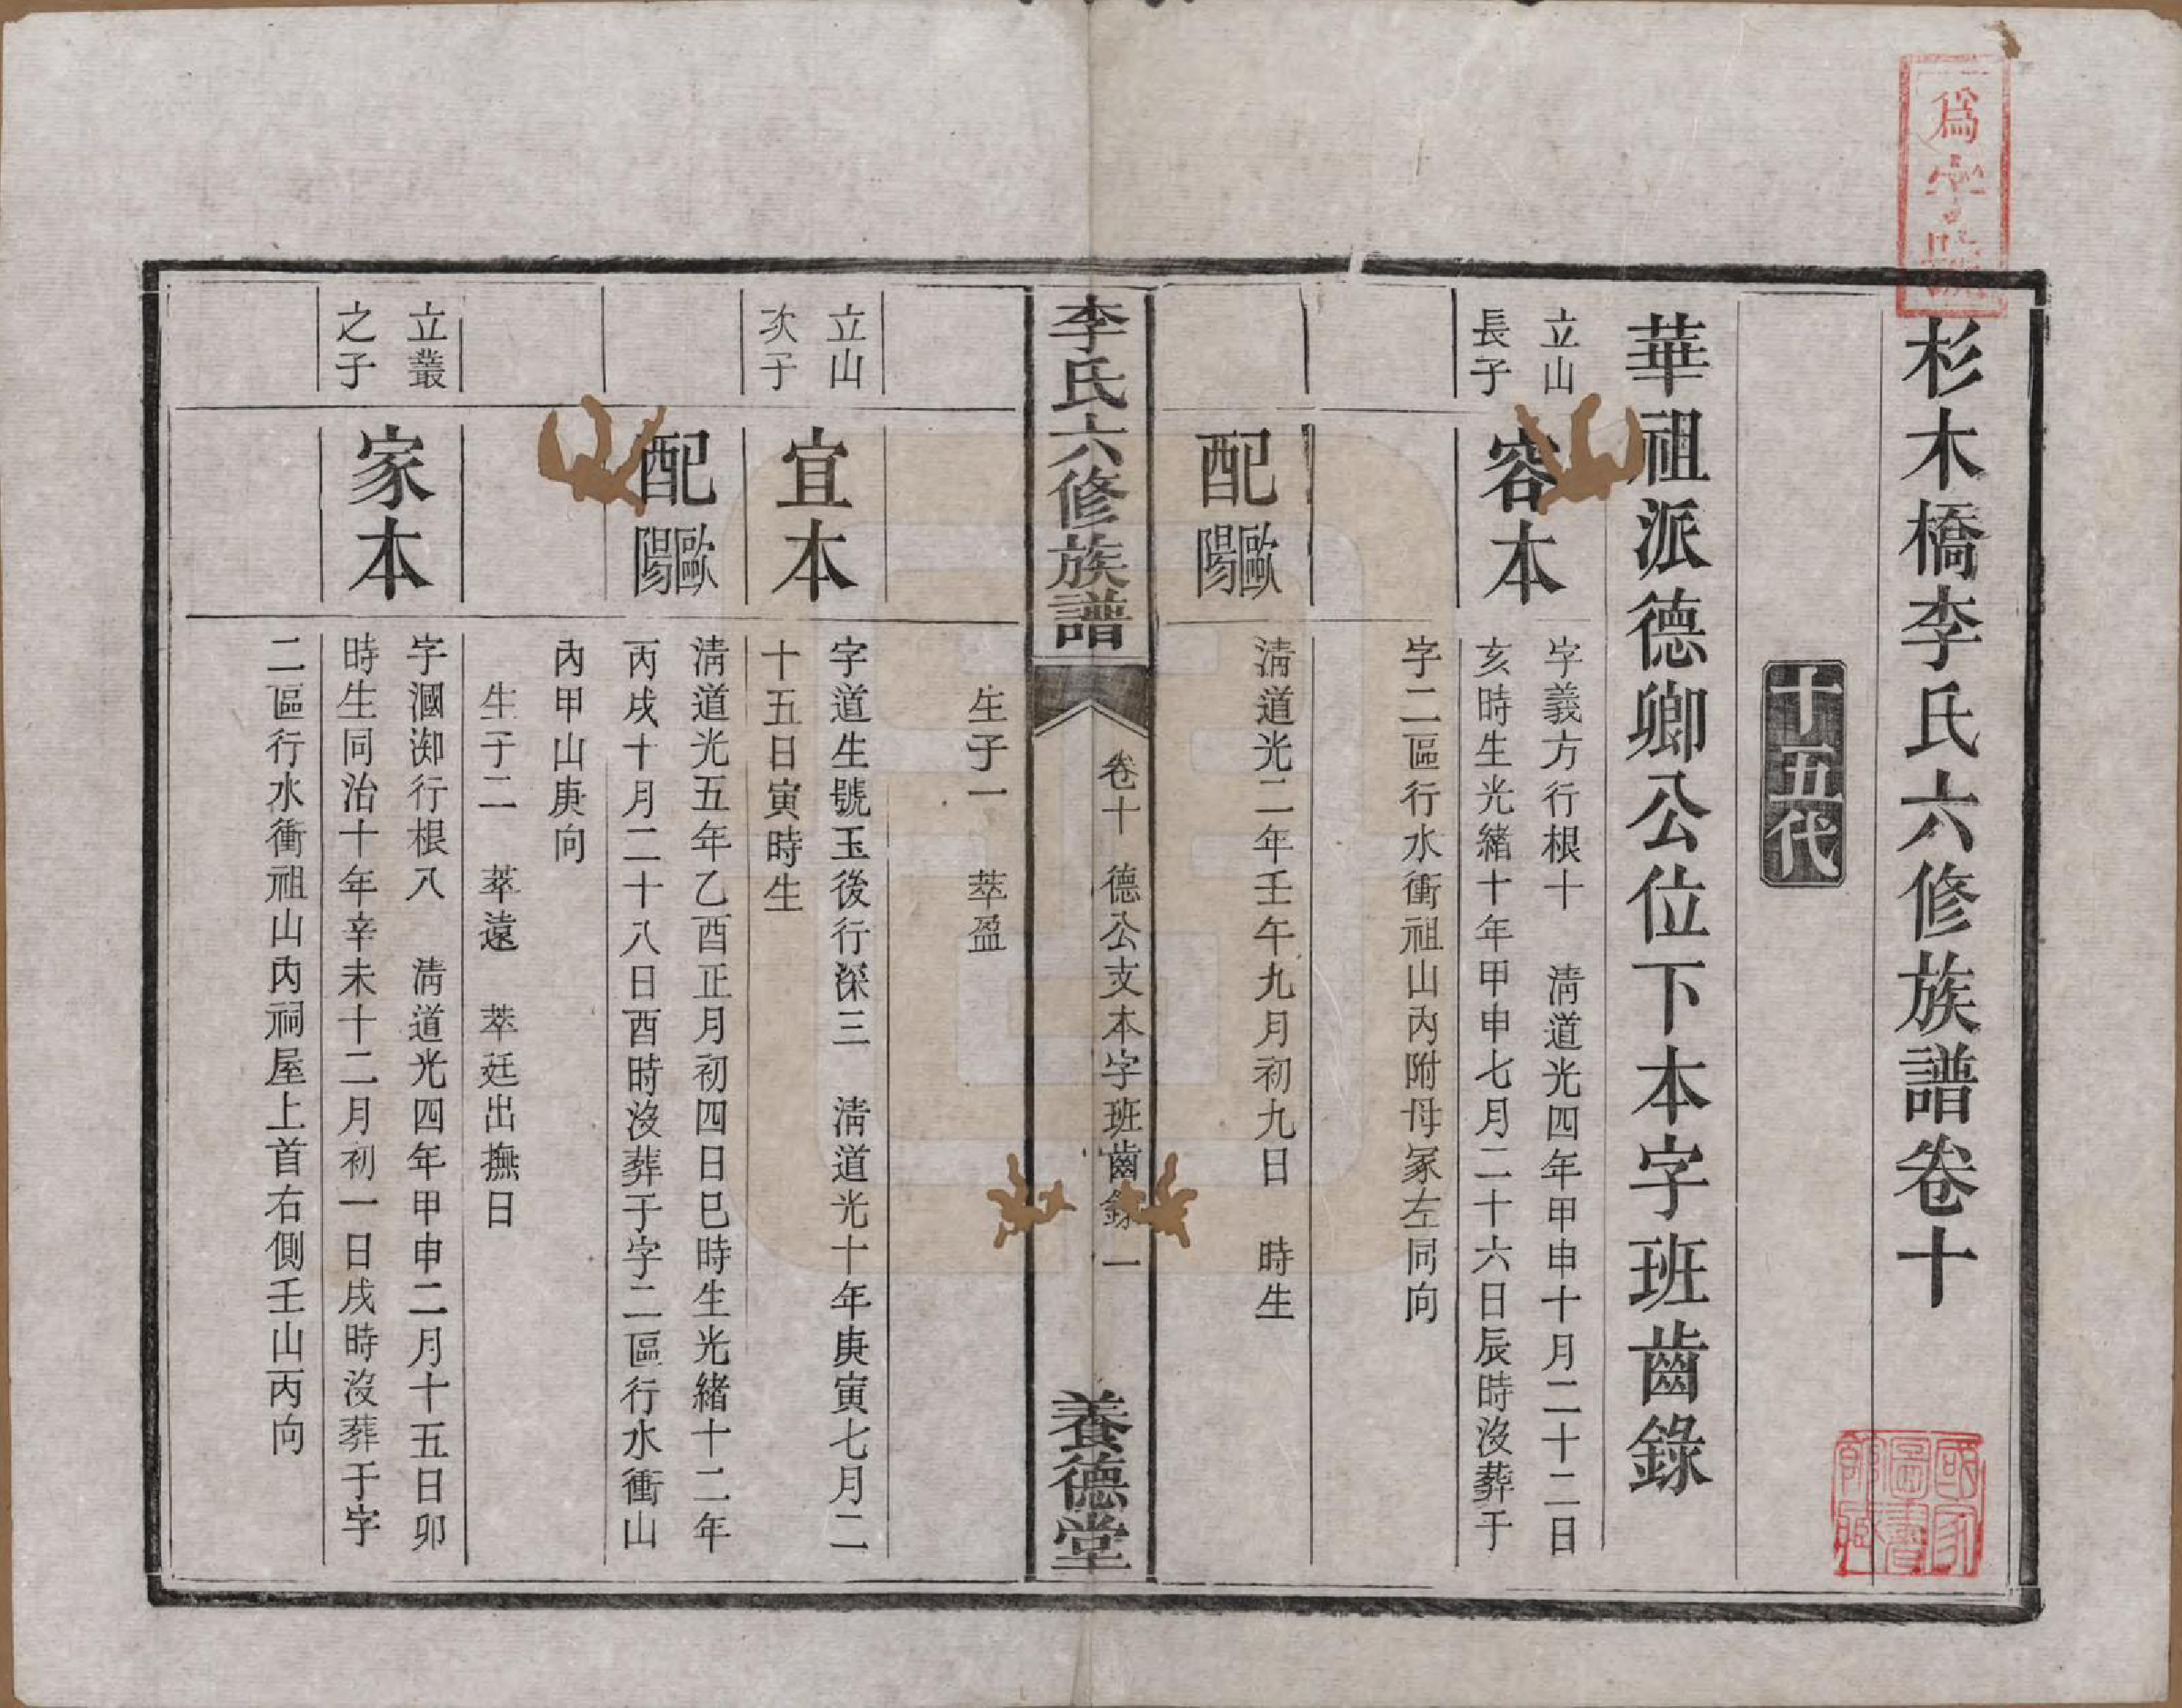 爲字號
杉木橋李氏六修族譜卷十
十五代
華祖派德卿公位下本字班齒錄
立山
長子
容本
字義方行根十　清道光四年甲申十月二十二日
亥時生光緒十年甲申七月二十六日辰時沒葬于
字二區行水衝祖山內附母冢左同向
配歐陽
清道光二年壬午九月初九日　時生
李氏六修族譜
卷十　德公支本字班齒錄一
養德堂
生子一　萃盈
立山
次子
宜本
字道生號玉後行深三　清道光十年庚寅七月二
十五日寅時生
配歐陽
清道光五年乙酉正月初四日巳時生光緒十二年
丙戌十月二十八日酉時沒葬于字二區行水衝山
內甲山庚向
生子二　萃遠　萃廷出撫日
立叢
之子
家本
字漍泖行根八　清道光四年甲申二月十五日卯
時生同治十年辛未十二月初一日戌時沒葬于字
二區行水衝祖山內祠屋上首右側壬山丙向
國家圖書館藏